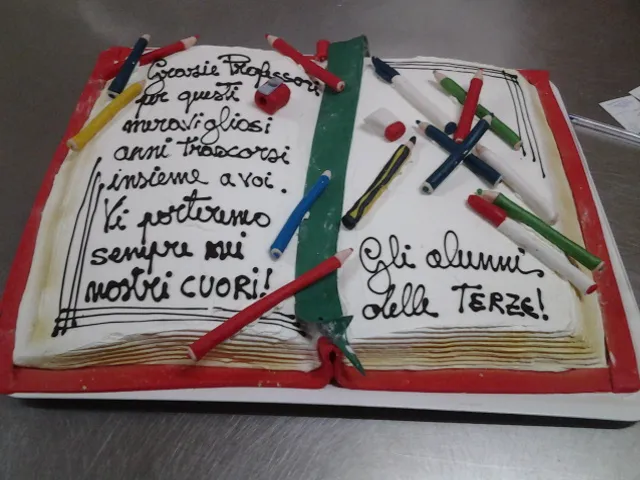 Grazie Professori
per questi
meravigliosi
anni trascorsi
insieme a voi.
Vi porteremo
sempre nei
nostri CUORI!
Gli alunni
delle TERZE!